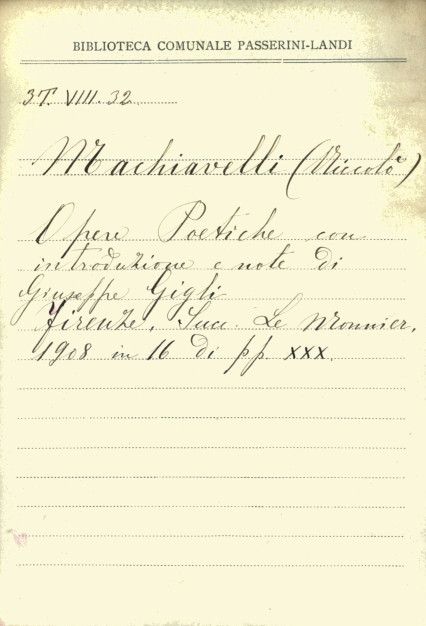 BIBLIOTECA COMUNALE PASSERINI-LANDI
3T. VIII. 32
Machiavelli (Niccolò)
Opere Poetiche con
introduzione e note di
Giuseppe Gigli
Firenze, Succ. Le Monnier,
1908 in 16 di pp. XXX.